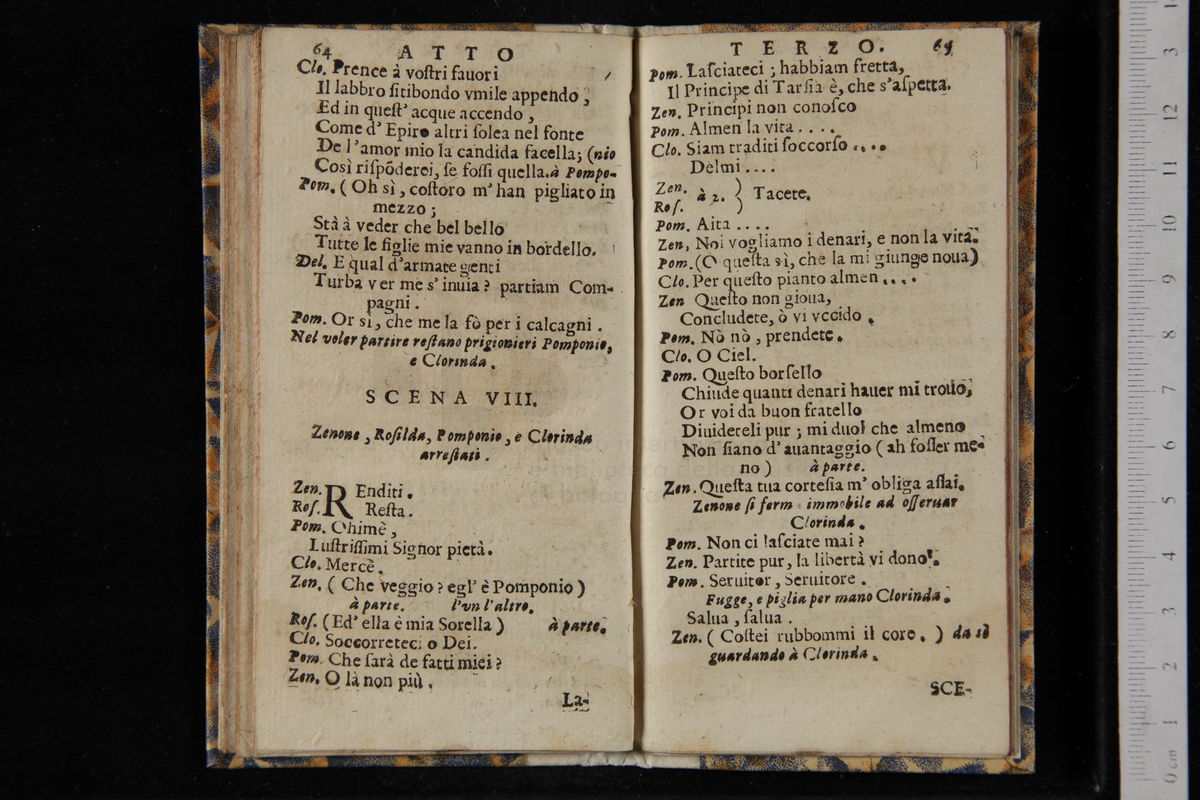 64 ATTO
Clo. Prence à voſtri fauori
Il labbro ſitibondo vmile appendo,
Ed in queſt' acque accendo,
Come d' Epiro altri ſolea nel fonte
De l'amor mio la candida facella; (nio
Così riſpõderei, ſe foſſi quella. à Pompo-
Pom. (Oh sì, coſtoro m' han pigliato in
mezzo;
Stà à veder che bel bello
Tutte le figlie mie vanno in bordello.
Del. E qual d'armate genti
Turba ver me s' inuia? partiam Com-
pagni.
Pom. Or sì, che me la fò per i calcagni.
Nel voler partire reſtano prigionieri Pomponio,
e Clorinda.
SCENA VIII.
Zenone, Roſilda, Pomponio, e Clorinda
arreſtati.
Zen. REnditi.
Roſ. Reſta.
Pom. Ohimè,
Luſtriſſimi Signor pietà.
Clo. Mercè.
Zen. (Che veggio? egl' è Pomponio)
à parte. l'vn l'altro.
Roſ. (Ed' ella è mia Sorella) à parte.
Clo. Soccorreteci o Dei.
Pom. Che ſarà de fatti miei?
Zen. O là non più.
La-
TERZO. 65
Pom. Laſciateci; habbiam fretta,
Il Principe di Tarſia è, che s'aſpetta.
Zen. Principi non conoſco
Pom. Almen la vita....
Clo. Siam traditi ſoccorſo....
Delmi....
Zen. à 2. } Tacete.
Roſ.
Pom. Aita....
Zen. Noi vogliamo i denari, e non la vita.
Pom. (O queſta sì, che la mi giunge noua)
Clo. Per queſto pianto almen....
Zen Queſto non gioua,
Concludete, ò vi vccido.
Pom. Nò nò, prendete.
Clo. O Ciel.
Pom. Queſto borſello
Chiude quanti denari hauer mi trouo,
Or voi da buon fratello
Diuideteli pur; mi duol che almeno
Non ſiano d' auantaggio (ah foſſer me-
no) à parte.
Zen. Queſta tua corteſia m' obliga aſſai.
Zenone ſi ferm immobile ad oſſeruar
Clorinda.
Pom. Non ci laſciate mai?
Zen. Partite pur, la libertà vi dono.
Pom. Seruitor, Seruitore.
Fugge, e piglia per mano Clorinda.
Salua, ſalua.
Zen. (Coſtei rubbommi il core.) da sè
guardando à Clorinda.
SCE-